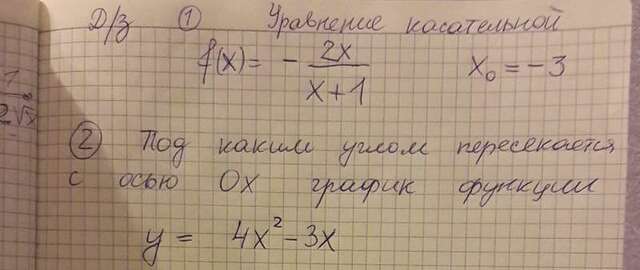 Д/з ① Уравнение касательной
f(x) = - 2x / x+1 x₀ = -3
② Под каким углом пересекается
с осью Ox график функции
y = 4x² - 3x
1
2√x